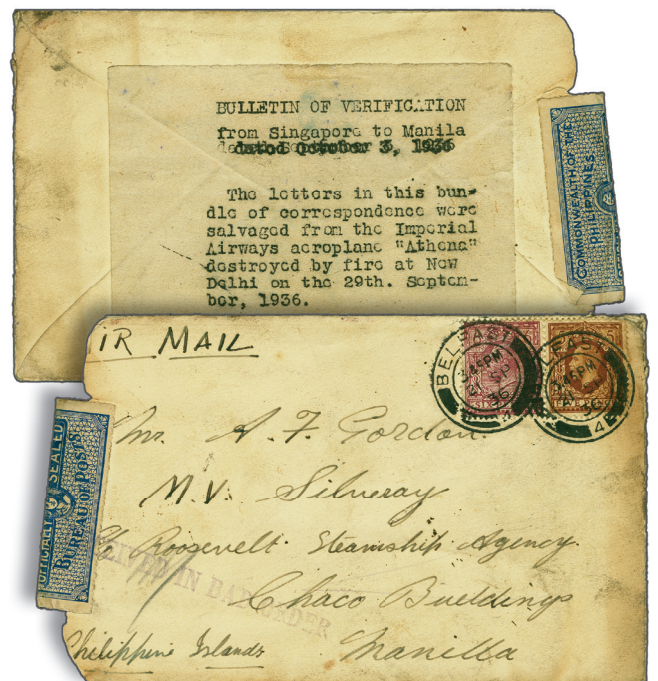 BULLETIN OF VERIFICATION
from Singapore to Manila
dated October 3, 1936
The letters in this bun-
dle of correspondence were
salvaged from the Imperial
Airways aeroplane "Athena"
destroyed by fire at New
Delhi on the 29th. Septem-
ber, 1936.
COMMONWEALTH OF THE
PHILIPPINES
IR MAIL
BELFAST
3.45PM
SP
36
4
FAST
3.45PM
36
4
Mr. A. F. Gordon.
M.V. Silveray
c/o Roosevelt Steamship Agency
Chaco Buildings
Philippine Islands Manilla
OFFICIALLY SEALED
BUREAU OF POSTS
IN BAD ORDER